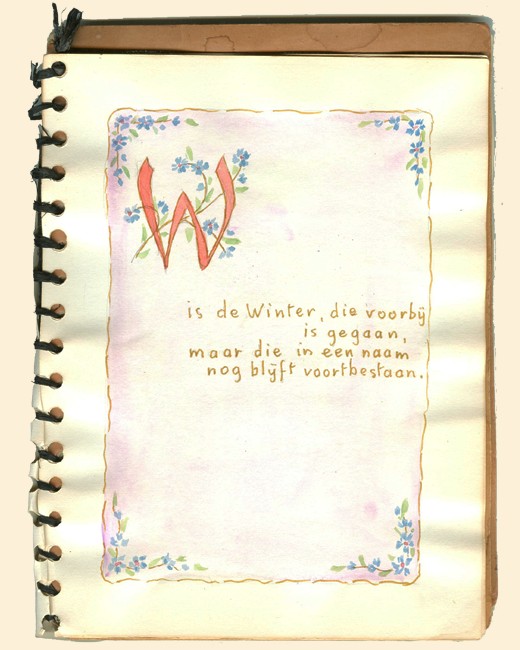 W
is de Winter, die voorbij
is gegaan,
maar die in een naam
nog blijft voortbestaan.